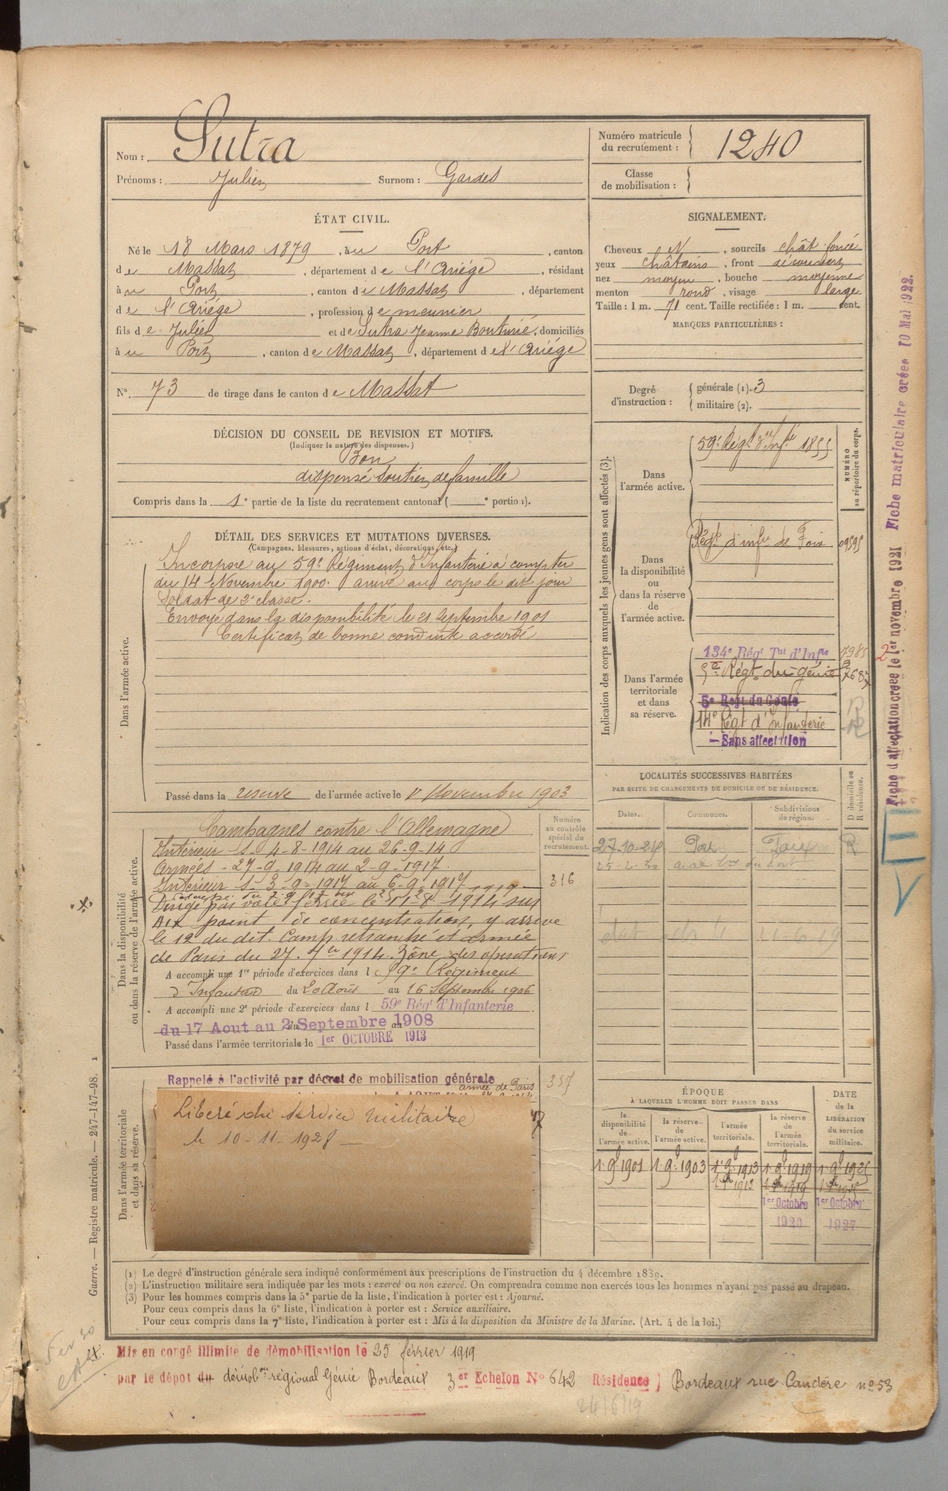 Nom : Sutra
Prénoms : Julien Surnom : Gardes
Numéro matricule du recrutement : 1240
Classe de mobilisation :
ÉTAT CIVIL.
Né le 18 Mars 1879, à u Port, canton
d e Massat, département d e l'Ariége, résidant
à u Port, canton d e Massat, département
d e l'Ariége, profession d e meunier
fils d e Julien et d e Sutra Jeanne Bouturié, domiciliés
à u Port, canton d e Massat, département d e l'Ariége
N° 73 de tirage dans le canton d e Massat
SIGNALEMENT.
Cheveux N, sourcils chât. foncé
yeux châtains, front découvert
nez moyen, bouche moyenne
menton rond, visage large
Taille : 1 m. 71 cent. Taille rectifiée : 1 m. cent.
MARQUES PARTICULIÈRES :
Degré d'instruction : générale (1). 3
militaire (2).
DÉCISION DU CONSEIL DE REVISION ET MOTIFS.
(Indiquer la nature des dispenses.)
Bon
dispensé soutien de famille
Compris dans la 1e partie de la liste du recrutement cantonal ( e portion).
DÉTAIL DES SERVICES ET MUTATIONS DIVERSES.
(Campagnes, blessures, actions d'éclat, décorations, etc.)
Dans l'armée active.
Incorporé au 59e Régiment d'Infanterie à compter
du 14 Novembre 1900. arrivé au corps le dit jour
Soldat de 2e classe.
Envoyé dans la disponibilité le 21 Septembre 1901
Certificat de bonne conduite accordé
Passé dans la réserve de l'armée active le 1er Novembre 1903
Indication des corps auxquels les jeunes gens sont affectés (3).
NUMÉRO au répertoire du corps.
Dans l'armée active.
59e Régt d'Infie 1855
Dans la disponibilité ou dans la réserve de l'armée active.
Régt d'infie de Foix 09595
Dans l'armée territoriale et dans sa réserve.
134e Régt Tal d'Infie
5e Régt du génie
5e Régt du Génie
14e Régt d'Infanterie
Sans affectation
Fiche d'affectation créée le 1er novembre 1921 Fiche matriculaire créée 10 Mai 1922.
Dans la disponibilité ou dans la réserve de l'armée active.
Campagnes contre l'Allemagne
Intérieur S. 4-8-1914 au 26-9-14
Armées - 27-9-1914 au 2-9-1917
Intérieur S. 3-9-1917 au 6-9-1917
Dirigé par voie ferrée le 11-8-1914 sur
Aix point de concentration, y arrive
le 12 du dit. Camp retranché et armée
de Paris du 27. 7bre 1914. Zône des opérations
A accompli une 1re période d'exercices dans l e 59e Régiment
d'Infanterie du 20 Août au 16 Septembre 1906
A accompli une 2e période d'exercices dans l 59e Régt d'Infanterie
du 17 Aout au 2 Septembre 1908
Passé dans l'armée territoriale le 1er OCTOBRE 1913
Numéro au contrôle spécial du recrutement.
316
357
LOCALITÉS SUCCESSIVES HABITÉES
PAR SUITE DE CHANGEMENTS DE DOMICILE OU DE RÉSIDENCE.
Dates. Communes. Subdivisions de région. D domicile ou R résidence.
27-10-24 Port Foix R
Dans l'armée territoriale et dans sa réserve.
Rappelé à l'activité par décret de mobilisation générale
armée de Paris
Libéré du service militaire
le 10-11-1928
ÉPOQUE
À LAQUELLE L'HOMME DOIT PASSER DANS
la disponibilité de l'armée active. la réserve de l'armée active. l'armée territoriale. la réserve de l'armée territoriale. DATE de la LIBÉRATION du service militaire.
1 9 1901 1 9 1903 1 9 1913 1 9 1919 1 9 1925
1er Octobre 1920 1er Octobre 1927
(1) Le degré d'instruction générale sera indiqué conformément aux prescriptions de l'instruction du 4 décembre 1889.
(2) L'instruction militaire sera indiquée par les mots : exercé ou non exercé. On comprendra comme non exercés tous les hommes n'ayant pas passé au drapeau.
(3) Pour les hommes compris dans la 5e partie de la liste, l'indication à porter est : Ajourné.
Pour ceux compris dans la 6e liste, l'indication à porter est : Service auxiliaire.
Pour ceux compris dans la 7e liste, l'indication à porter est : Mis à la disposition du Ministre de la Marine. (Art. 4 de la loi.)
Guerre. — Registre matricule. — 247-147-98. 1
Mis en congé illimité de démobilisation le 25 février 1919
par le dépot du démobre régional Génie Bordeaux 3er Echelon N° 642 Résidence Bordeaux rue Candére n° 53
24/6/19